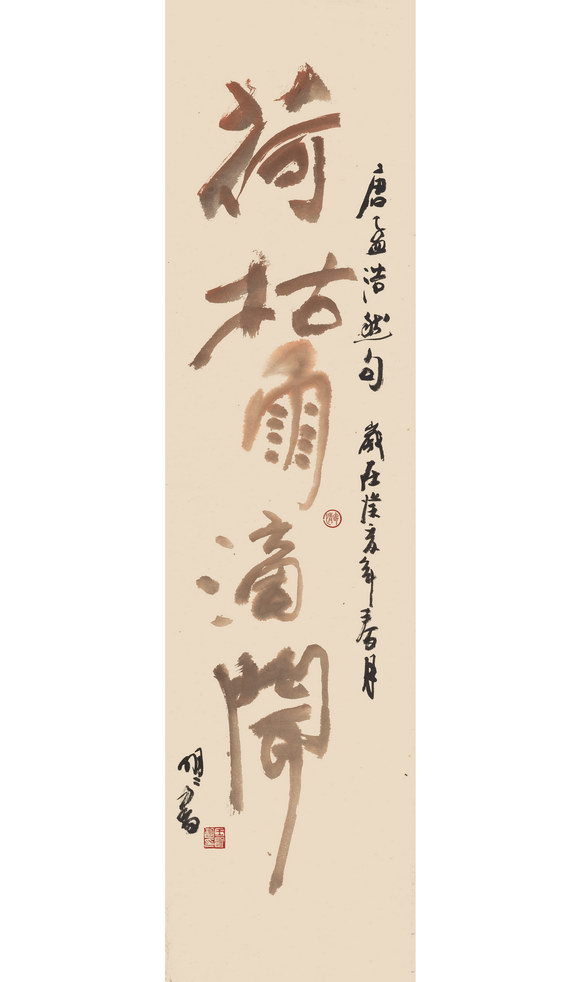 荷枯雨滴聞
唐孟浩然句 歲在癸亥年春月
明〻書